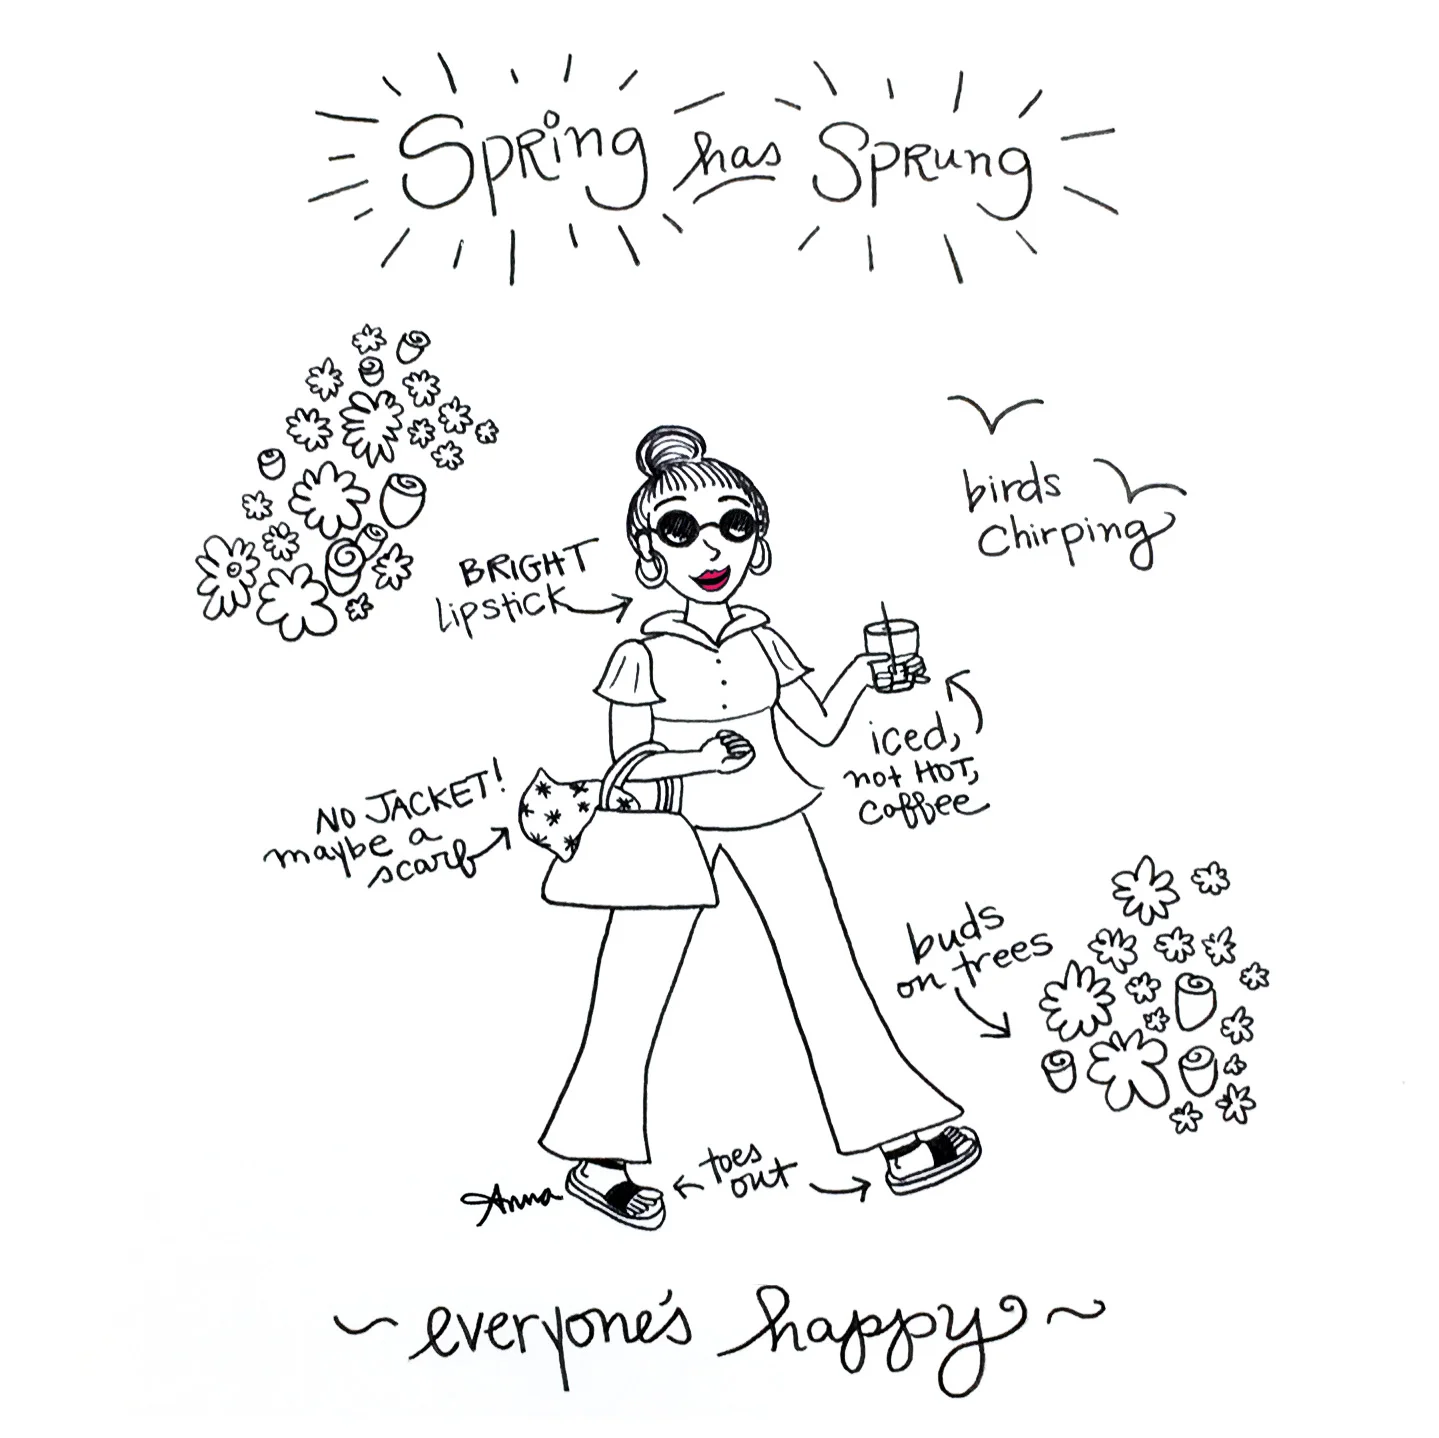 Spring has Sprung
birds
chirping
BRIGHT
lipstick
iced,
not HOT,
coffee
NO JACKET!
maybe a
scarf
buds
on trees
toes
out
Anna
~ everyone's happy ~